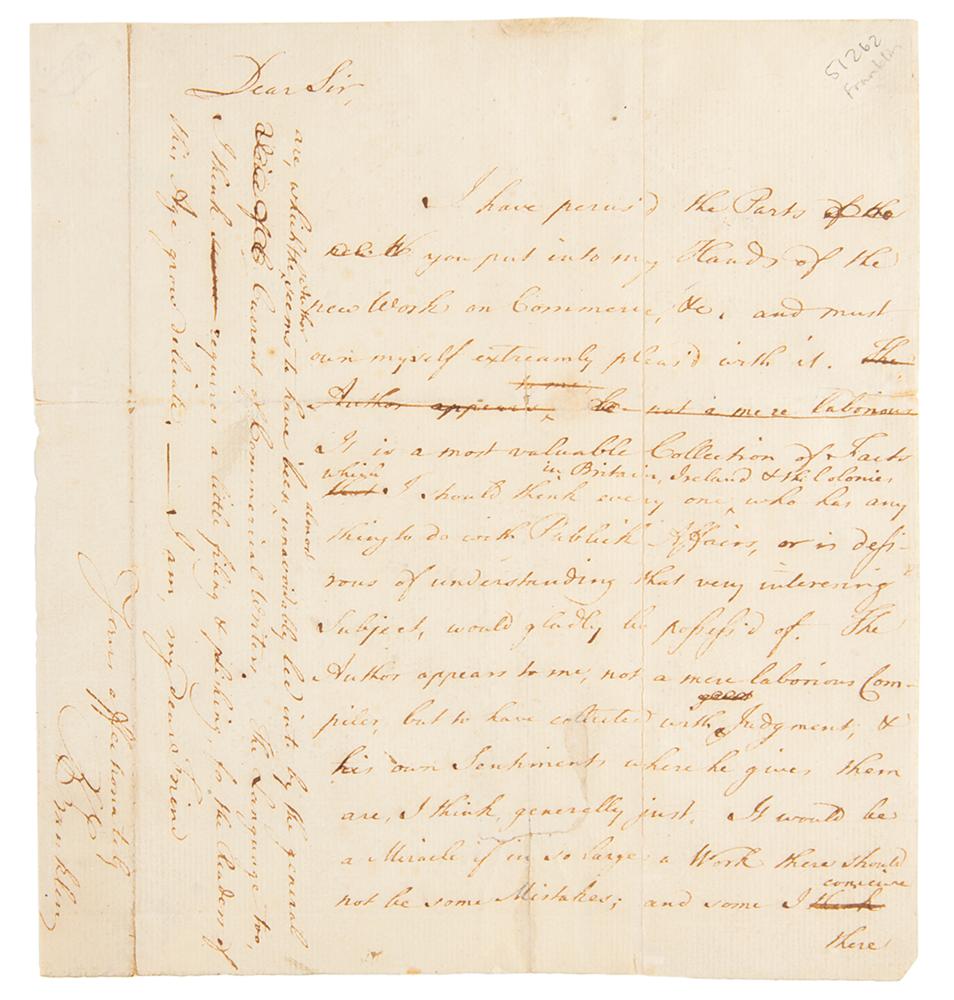 51262
Franklin
Dear Sir,
I have perus'd the Parts of the
you put into my Hands of the
new Work on Commerce, &c. and must
own myself extreamly pleas'd with it. The
to me
Author appears, not a mere laborious
It is a most valuable Collection of Facts
which in Britain, Ireland & the Colonies
that I should think every one who has any
thing to do with Publick Affairs, or is desi-
rous of understanding that very interesing
Subject, would gladly be possess'd of. The
Author appears to me, not a mere laborious Com-
piler, but to have collected with great Judgment; &
his own Sentiments where he gives them
are, I think, generally just. It would be
a Miracle if in so large a Work there should
conceive
not be some Mistakes; and some I think
there
are, which the Author seems to have been almost unavoidably led into by the general
Current of Commercial Writers. The Language too,
I think requires a little filing & polishing, for the Readers of
this Age grow delicate. — I am, my dear Friend
Yours affectionately
B Franklin